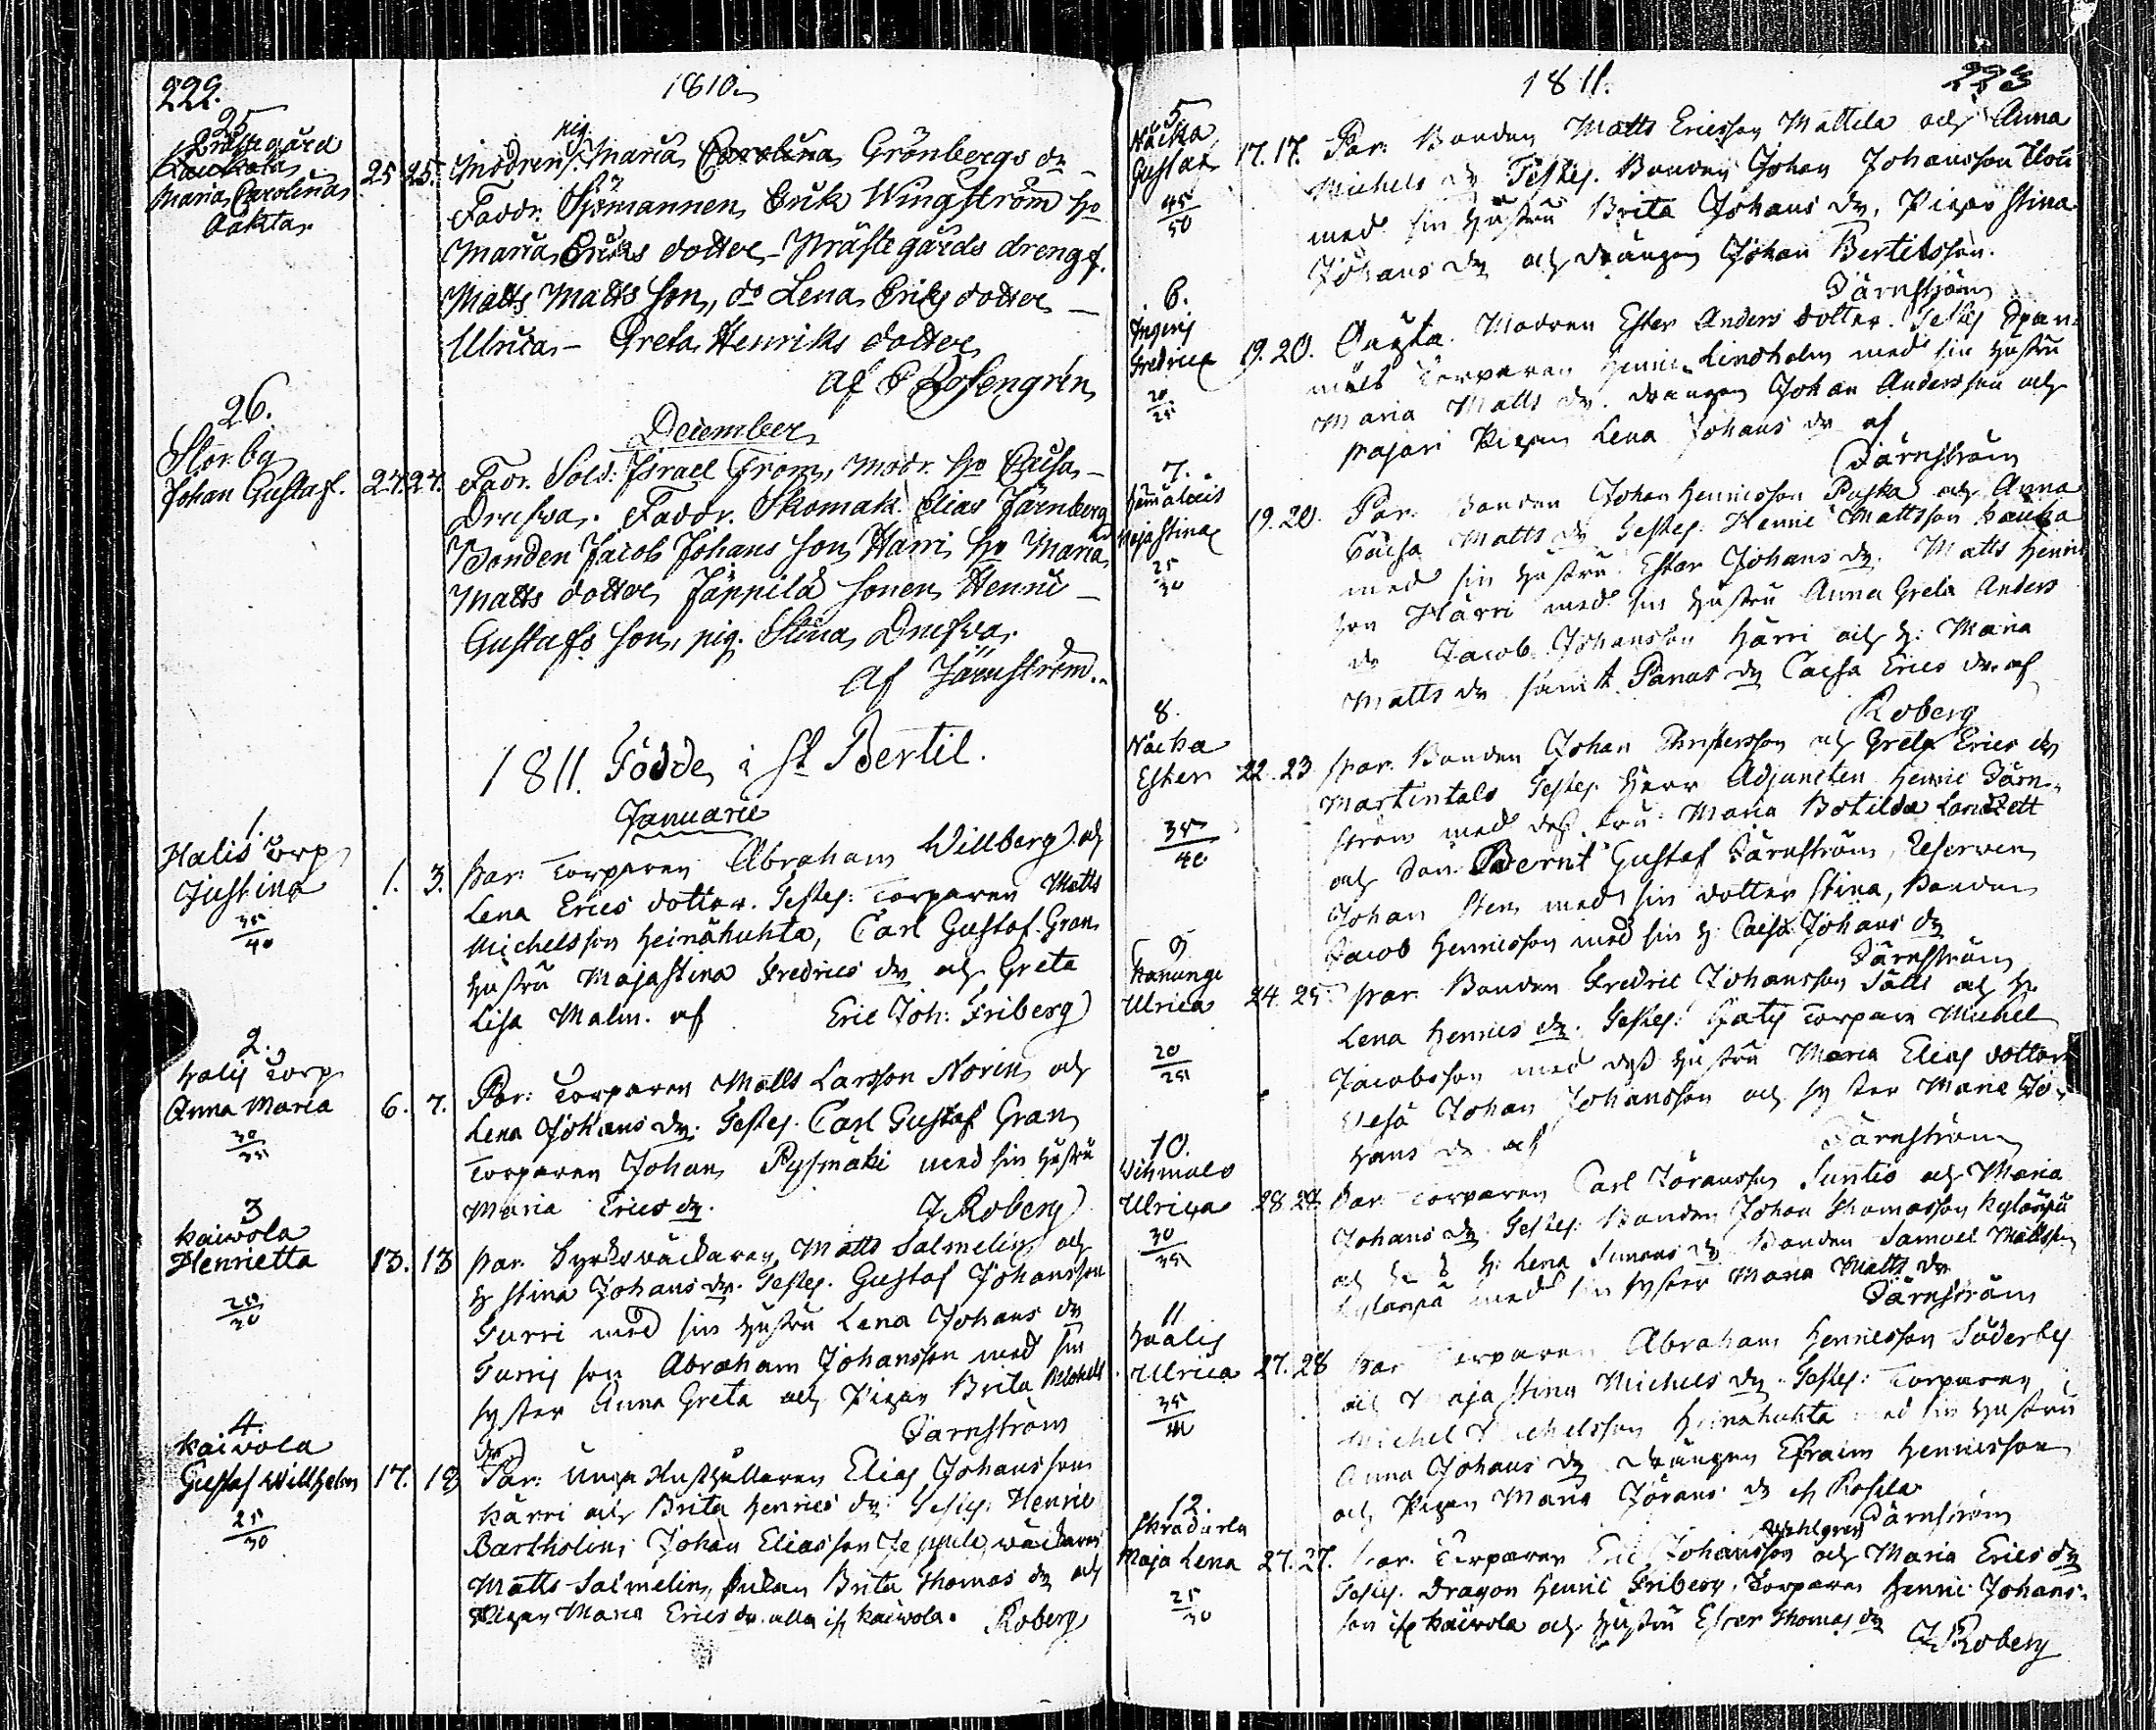 222.
1810.
25
Prästegård
Maria Carolina
Oäkta.
25 25. Modren pig. Maria Carolina Grönbergs dr
Faddr. Sjömannen Erik Wingström hu
Maria Eriks dotter Prästegårds dreng
Matts Matts son, do Lena Eriks dotter
Ulrica - Greta Henriks dotter
af E Rosengrén
December
26.
Storby
Johan Gustaf. 24. 24. Fadr. Sold. Israel From, modr. hu Caisa
Faddr. Skomak. Elias Järnberg
Bonden Jacob Johans son Harri hu Maria
Matts dotter Jäppilä sonen Henric
Gustafs son, pig. Stina
af Järnström..
1811. Födde i St Bertil.
Januarii
1.
Halis Torp
Justina
35
40
1. 3. Par: Torparen Abraham Willberg och
Lena Erics dotter. Testes: Torparen Matts
Michelsson Heinähuhta, Carl Gustaf Gran
Hustru Majastina Fredrics dr och Greta
Lisa Malm. af Eric Joh: Friberg
2.
Halis Torp
Anna Maria
30
35
6. 7. Par: Torparen Matts Larsson Norin och
Lena Johans dr. Testes. Carl Gustaf Gran
Torparen Johan Pysmäki med sin hustru
Maria Erics dr. J Roberg
3
Kaivola
Henrietta
20
30
13. 13 Par. Matts Salmelin och
H Stina Johans dr. Testes. Gustaf Johansson
Turri med sin hustru Lena Johans dr
Turri son Abraham Johansson med sin
syster Anna Greta och Pigan Brita Michels
dr Järnström
4.
Kaivola
Gustaf Willhelm
25
30
17. 18 Par: Unga Hushållaren Elias Johansson
Härri och Brita Henrics dr: Testes: Henric
Bartholin, Johan Eliasson Jeppilä,
Matts Salmelin, Brita Thomas dr och
Pigan Maria Erics dr. alla if. Kaivola. Roberg
1811.
223
5.
Näcka
Gustaf
45
50
17. 17. Par: Bonden Matts Ericsson Mattila och Anna
Michels dr Testes. Bonden Johan Johansson
med sin hustru Brita Johans dr, Pigan Stina
Johans dr och drängen Johan Bertilsson.
Järnström
6.
Fredrica
20
25
19. 20. Oäkta. Modren Ester Anders dotter. Testes
Torparen Henric Lindholm med sin hustru
Maria Matts dr. drängen Johan Andersson och
Pigan Lena Johans dr af
Järnström
7.
Majastina
25
30
19. 20. Par: Bonden Johan Henricsson Paska och Anna
Caisa Matts dr Testes: Henric Mattsson
med sin hustru Ester Johans dr. Matts Henrics
son Härri med sin hustru Anna Greta Anders
dr Jacob Johansson Härri och H: Maria
Matts dr samt Caisa Erics dr. af
Roberg
8.
Näcka
Ester
35
40
22. 23 Par. Bonden Johan Christersson och Greta Erics dr
Martintalo Testes. Herr Adjuncten Henric Järn-
ström med dess fru: Maria Botilda Landzett
och son Berent Gustaf Järnström, Reserven
Johan Sten med sin dotter Stina, Bonden
Jacob Henricsson med sin H: Caisa Johans dr
Järnström
9
Kanunge
Ulrica
20
25
24. 25. Par. Bonden Fredric Johansson Sälli och H.
Lena Henrics dr. Testes: Torparen Michel
Jacobsson med dess hustru Maria Elias dotter
Johan Johansson och syster Maria Jo-
hans dr. af Järnström
10.
Vihmalo
Ulrica
30
35
28. 28. Par. Torparen Carl Göransson Suntio och Maria
Johans dr. Testes: Bonden Johan Thomasson Kylänpä
och H: Lena Simons dr. Bonden Samuel Mattsson
Kylänpä med sin syster Maria Matts dr
Järnström
11
Haalis
Ulrica
35
40
27. 28 Par Torparen Abraham Henricsson Söderby
och Majastina Michels dr. Testes: Torparen
Michel Michelsson Heinähuhta med sin hustru
Anna Johans dr. drängen Efraim Henricsson
och Pigan Maria Görans dr
Järnström
12.
Skradarla
Maja Lena
25
30
27. 27. Par. Torparen Eric Johansson Wahlgren och Maria Erics dr
Testes. Dragon Henric Friberg, Torparen Henric Johans-
son if. Kaivola och hustru Ester Thomas dr
J Roberg